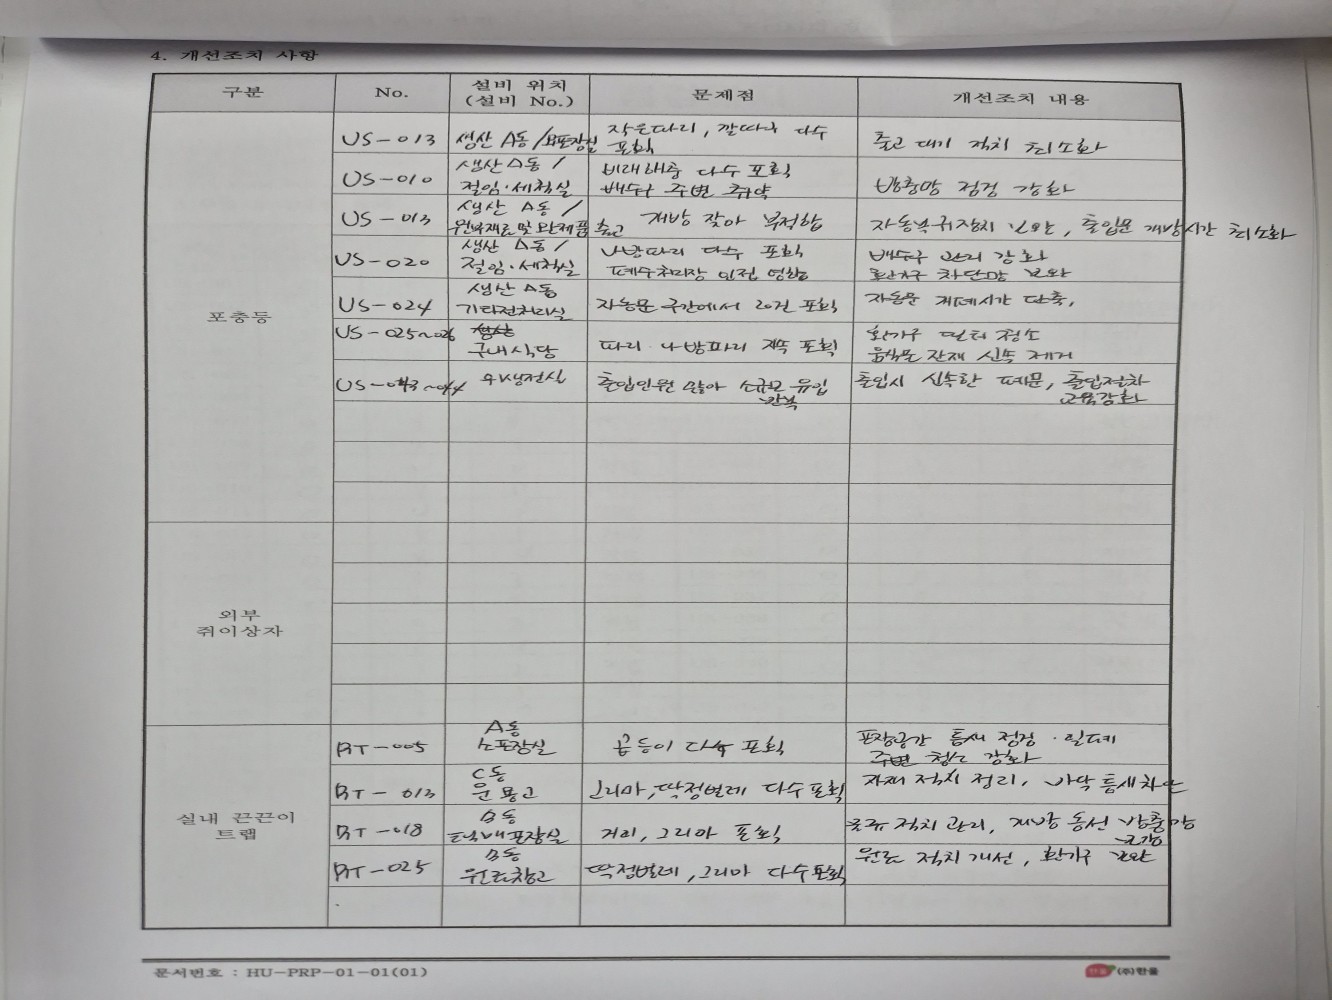 4. 개선조치 사항
구분 No. 설비 위치 (설비 No.) 문제점 개선조치 내용
포충등
US-013 생산 A동 / 소포장실 작은파리, 깔따구 다수 포획 출고 대기 적치 최소화
US-010 생산 A동 / 절임·세척실 비래해충 다수 포획 배수구 주변 취약 방충망 점검 강화
US-013 생산 A동 / 원부재료 및 완제품 출고 개방 잦아 부적합 자동복귀장치 보완, 출입문 개방시간 최소화
US-020 생산 A동 / 절임·세척실 나방파리 다수 포획 폐수처리장 인접 영향 배수구 관리 강화 차단망 보완
US-024 생산 A동 기타전처리실 자동문 구간에서 20건 포획 자동문 개폐시간 단축,
US-025~026 구내식당 파리·나방파리 지속 포획 환기구 필터 청소 음식물 잔재 신속 제거
US-043~044 위생전실 출입인원 많아 소규모 유입 반복 출입시 신속한 폐문, 출입절차 교육강화
외부
쥐이상자
실내 끈끈이
트랩
RT-005 A동 소포장실 곱등이 다수 포획 포장공간 틈새 점검·밀폐 주변 청소 강화
RT-013 C동 그리마, 딱정벌레 다수포획 자재 적치 정리, 바닥 틈새차단
RT-018 B동 택배포장실 거미, 그리마 포획 적치 관리, 개방 동선 방충망
RT-025 B동 원료창고 딱정벌레, 그리마 다수포획 원료 적치개선, 환기구 보완
문서번호 : HU-PRP-01-01(01)
한울 (주)한울